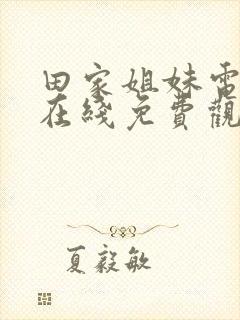 田家姐妹電
在綫免費觀
夏毅敏